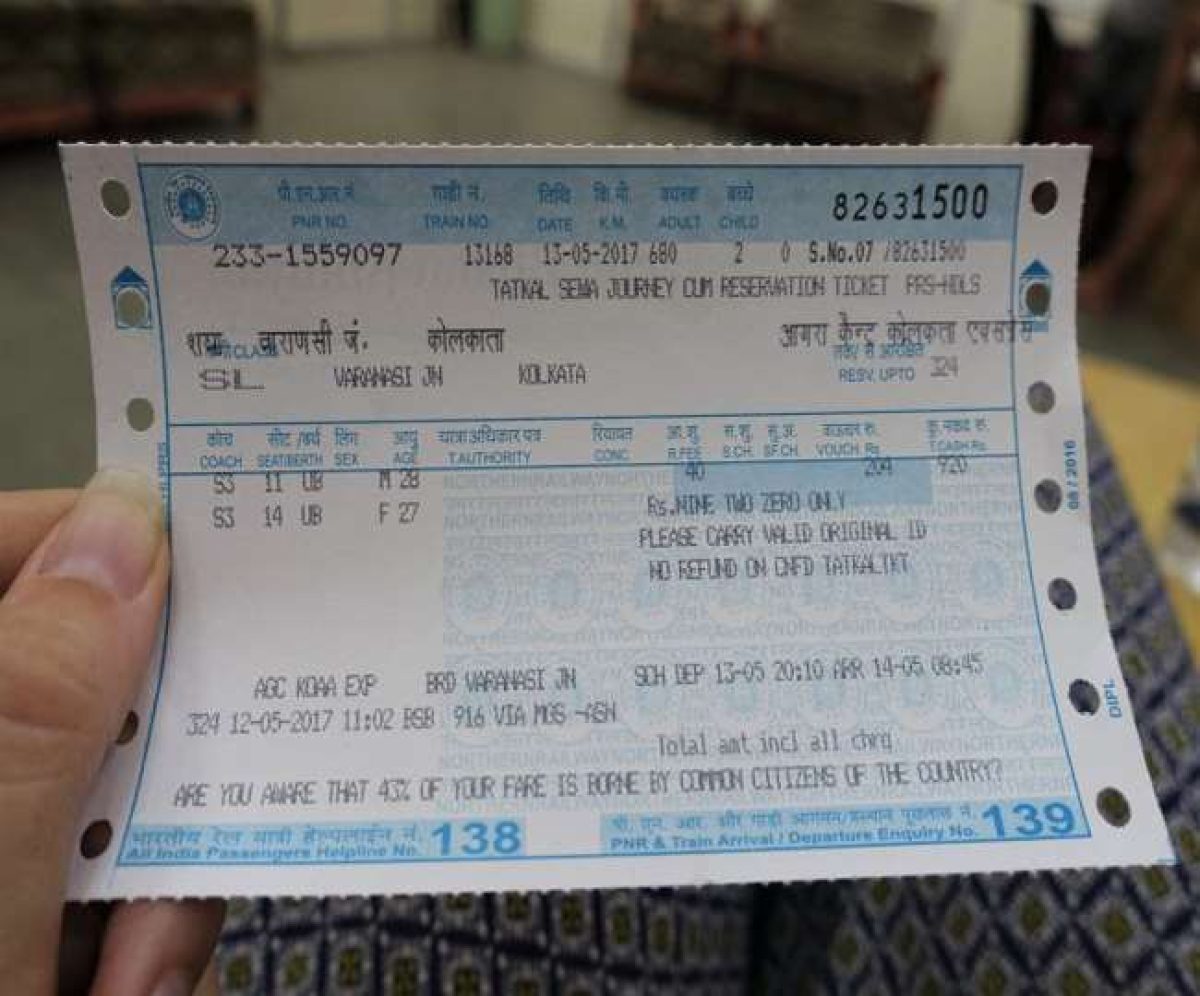 पी.एन.आर.नं. गाड़ी नं. तिथि कि.मी. वयस्क बच्चे 82631500
PNR NO. TRAIN NO. DATE K.M. ADULT CHILD
233-1559097 13168 13-05-2017 680 2 0 S.No.07 /82631500
TATKAL SEWA JOURNEY CUM RESERVATION TICKET PRS-NDLS
वाराणसी जं. कोलकाता आगरा कैन्ट कोलकता एक्सप्रेस
CLASS
SL VARANASI JN KOLKATA RESV. UPTO 324
कोच सीट/बर्थ लिंग आयु यात्रा अधिकार पत्र रियायत आ.शु. स.शु. सु.अ. वाऊचर रु. कु. नकद रु.
COACH SEAT/BERTH SEX AGE T.AUTHORITY CONC. R.FEE S.CH. SF.CH. VOUCH Rs. T.CASH Rs.
S3 11 UB M 28 40 204 920
S3 14 UB F 27 Rs.NINE TWO ZERO ONLY
PLEASE CARRY VALID ORIGINAL ID
NO REFUND ON CNFD TATKALTKT
AGC KOAA EXP BRD VARANASI JN SCH DEP 13-05 20:10 ARR 14-05 08:45
324 12-05-2017 11:02 BSB 916 VIA MGS -ASN
Total amt incl all chrg
ARE YOU AWARE THAT 43% OF YOUR FARE IS BORNE BY COMMON CITIZENS OF THE COUNTRY?
भारतीय रेल यात्री हेल्पलाईन नं. 138
All India Passengers Helpline No.
पी. एन. आर. और गाड़ी आगमन/प्रस्थान पूछताछ नं. 139
PNR & Train Arrival / Departure Enquiry No.
08/2016
DIPL